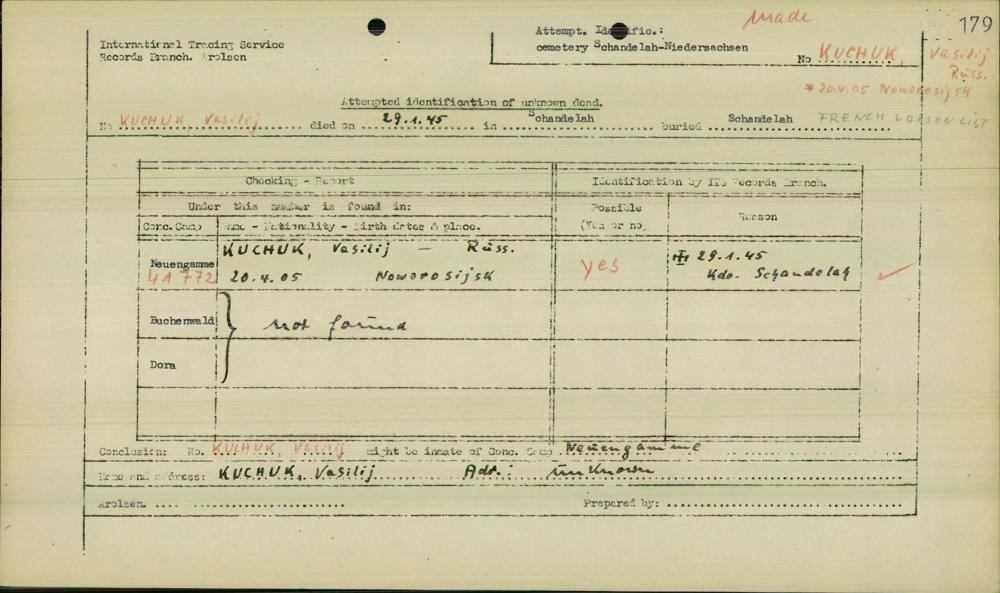 made
179
International Tracing Service
Records Branch. Arolsen
Attempt. Identific.:
cemetery Schandelah-Niedersachsen
No KUCHUK, Vasilij
Russ.
* 20.4.05 Noworosijsk
Attempted identification of unknown dead.
No KUCHUK, Vasilij died on 29.1.45 in Schandelah buried Schandelah FRENCH LARSEN LIST
Checking - Report
Identification by ITS Records Branch.
Under this number is found in:
Possible
(Yes or no)
Reason
Conc.Camp
Name - Nationality - Birth dates & place.
Neuengamme
41772
KUCHUK, Vasilij — Russ.
20.4.05 Noworosijsk
yes
29.1.45
Kdo. Schandelah
Buchenwald
not found
Dora
Conclusion: No. KUCHUK, Vasilij might be inmate of Conc. Camp Neuengamme
Name and address: KUCHUK, Vasilij Adr.: unknown
Arolsen.
Prepared by: